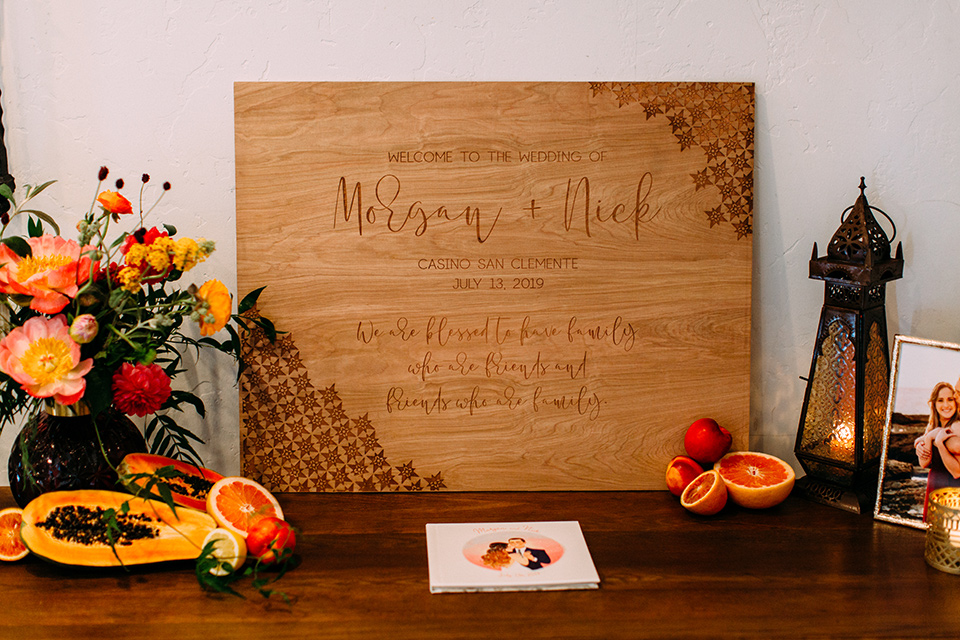 WELCOME TO THE WEDDING OF
Morgan + Nick
CASINO SAN CLEMENTE
JULY 13, 2019
We are blessed to have family
who are friends and
friends who are family.